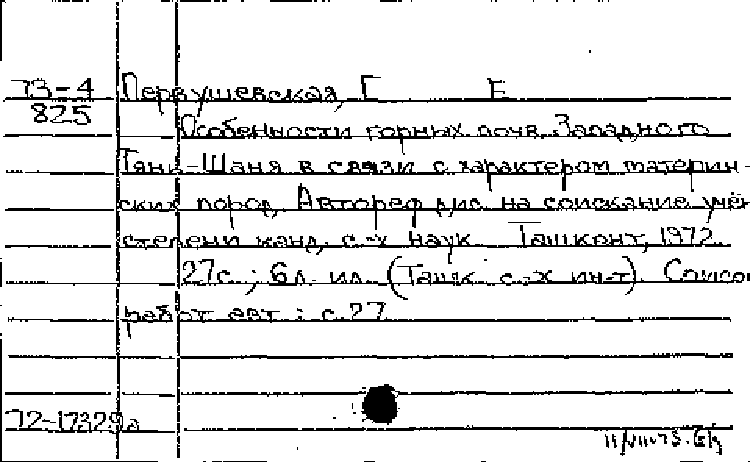 73-4 Первушевская, Г Е
825
Особенности горных почв Западного
Тянь-Шаня в связи с характером материн-
ских пород. Автореф дис. на соискание учён
степени канд. с.-х наук. Ташкент, 1972.
27с.; 6л. ил. (Ташк с.-х ин-т). Список
работ авт.: с.27
72-17329а